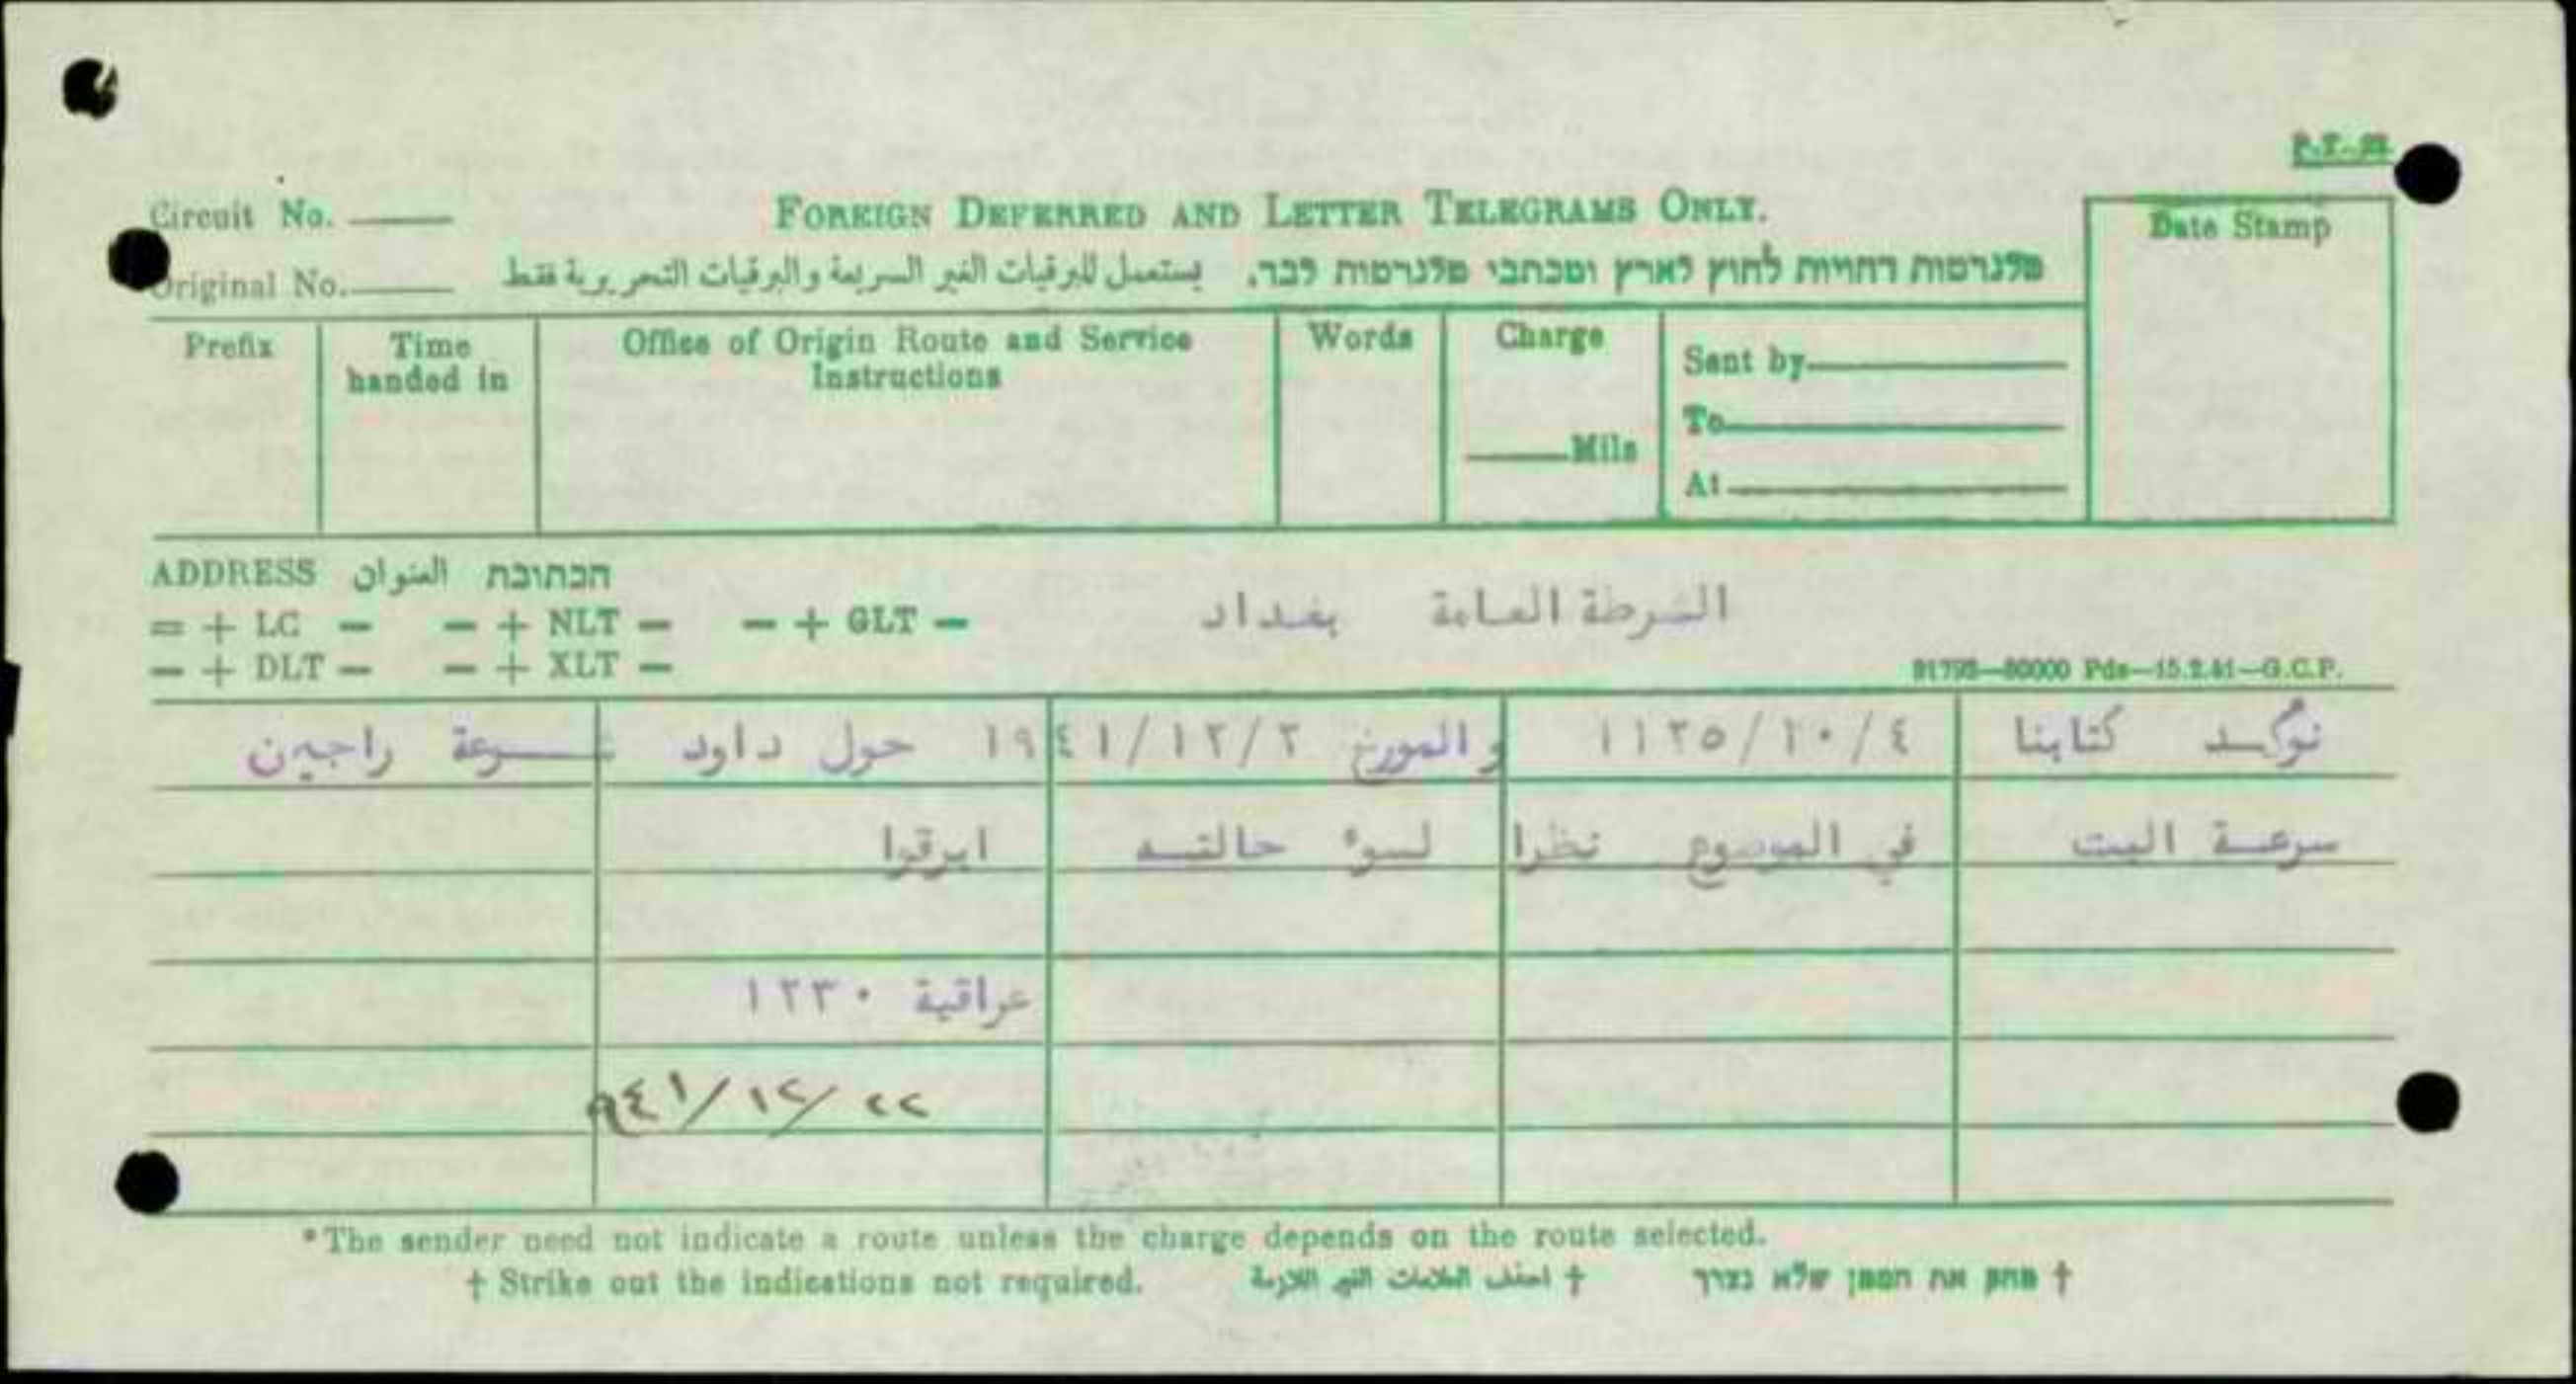 Circuit No.
FOREIGN DEFERRED AND LETTER TELEGRAMS ONLY.
Date Stamp
Original No.
يستعمل للبرقيات الغير السريعة والبرقيات التحريرية فقط
מלגרמות דחויות לחוץ לארץ ומכתבי מלגרמות לבד.
Prefix
Time handed in
Office of Origin Route and Service Instructions
Words
Charge
Mils
Sent by
To
At
ADDRESS العنوان הכתובת
= + LC – – + NLT – – + GLT –
– + DLT – – + XLT –
الشرطة العامة بغداد
91798—80000 Pds—15.2.41—G.C.P.
نوكد كتابنا ١١٢٥/١٠/٤ والمورخ ١٩٤١/١٢/٢ حول داود راجين
سرعة البت في الموضوع نظرا لسوء حالته ابرقوا
عراقية ١٢٣٠
٩٤١/١٢/٢٢
*The sender need not indicate a route unless the charge depends on the route selected.
† Strike out the indications not required.
† احذف العلامات الغير اللازمة
† מחק את הסמן שלא נצרך